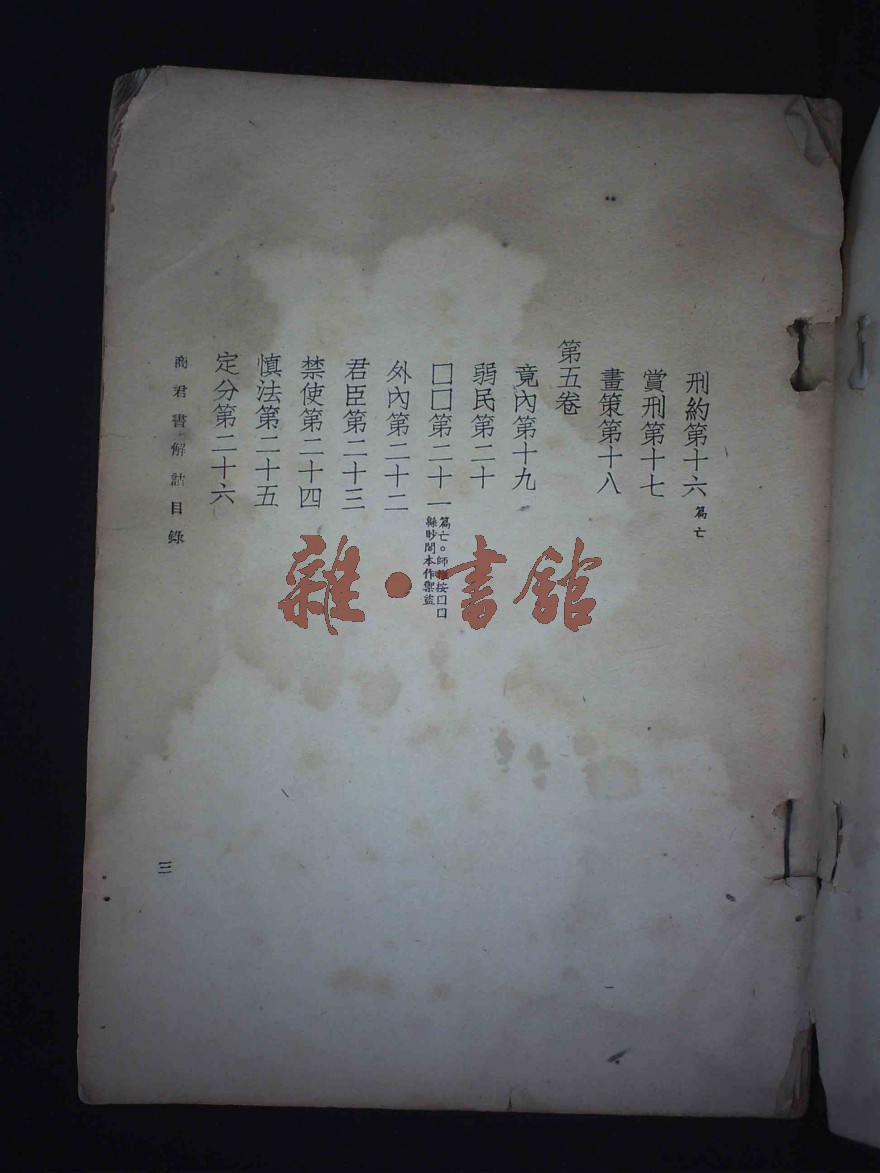 刑約第十六 篇亡
賞刑第十七
畫策第十八
第五卷
竟內第十九
弱民第二十
□□第二十一 篇亡。師按□□
緜眇閣本作禦盜
外內第二十二
君臣第二十三
禁使第二十四
慎法第二十五
定分第二十六
商君書解詁目錄
三
雜·書館